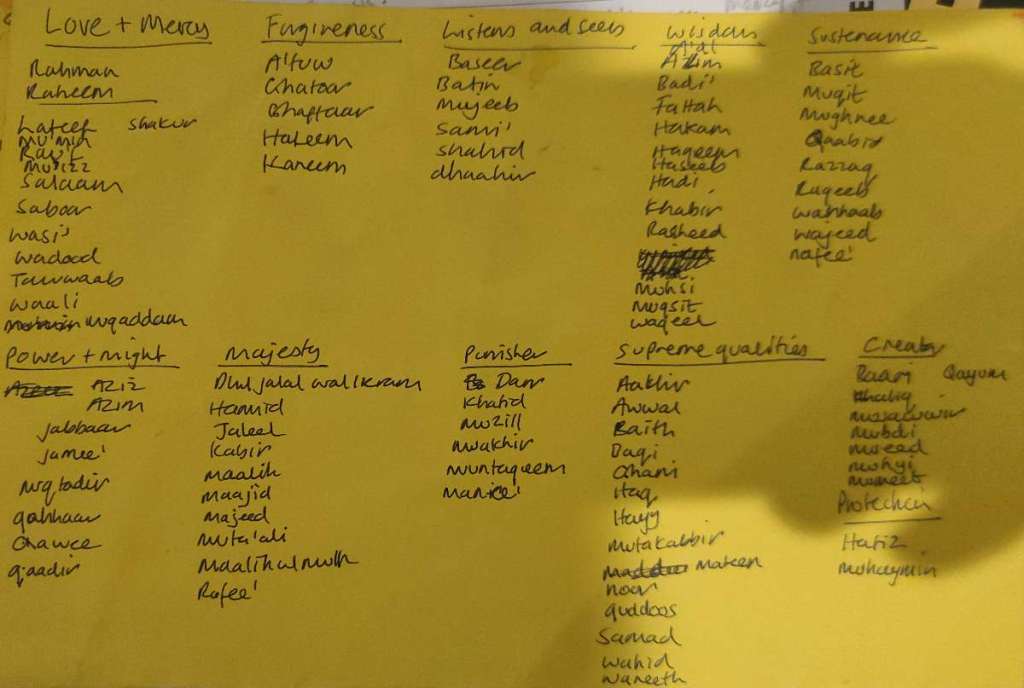 Love + Mercy
Rahman
Raheem
Lateef shakur
Mu'min
Rau'f
Mu'izz
Salaam
Saboor
wasi'
wadood
Tawwaab
waali
muqaddam
Forgiveness
A'fuw
Ghafoor
Ghaffaar
Haleem
Kareem
Listens and sees
Baseer
Batin
Mujeeb
Sami'
shahid
dhaahir
wisdom
A'dl
Alim
Badi'
Fattah
Hakam
Haqeem
Haseeb
Hadi
Khabir
Rasheed
Muhsi
Muqsit
waqeel
Sustenance
Basit
Muqit
Mughnee
Qaabid
Razzaq
Raqeeb
wahhaab
wajeed
nafee'
Power + might
Aziz
Azim
jabbaar
jamee'
muqtadir
qahhaar
Qawee
qaadir
Majesty
Dhul jalal wal ikram
Hamid
Jaleel
Kabir
Maalik
Maajid
Majeed
Muta'ali
Maalik ul mulk
Rafee'
Punisher
Darr
Khafid
Muzill
Muakhir
Muntaqeem
Manee'
Supreme qualities
Aakhir
Awwal
Baith
Baqi
Ghani
Haq
Hayy
mutakabbir
mateen
noor
quddoos
Samad
wahid
wareeth
Creator
Baari Qayum
Khaliq
musawwir
mubdi
mueed
muhyi
mumeet
Protection
Hafiz
muhaymin